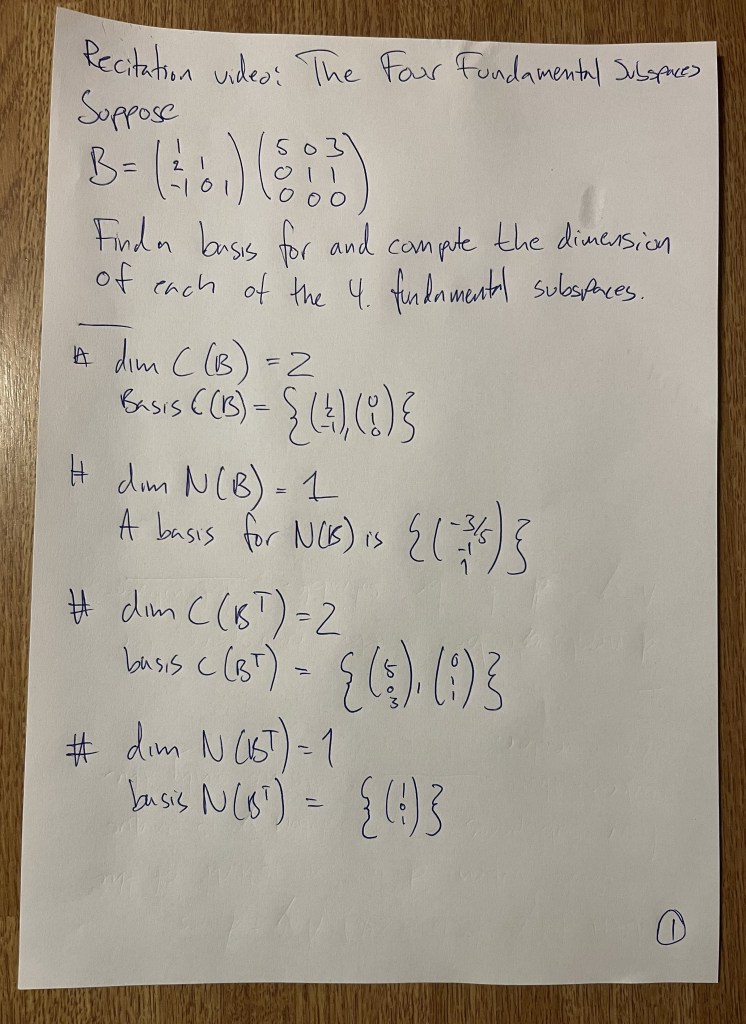 Recitation video: The Four Fundamental Subspaces
Suppose
B = (1 / 2 1 / -1 0 1) (5 0 3 / 0 1 1 / 0 0 0)
Find a basis for and compute the dimension
of each of the 4. fundamental subspaces.
# dim C(B) = 2
Basis C(B) = {(1 / 2 / -1), (0 / 1 / 0)}
# dim N(B) = 1
A basis for N(B) is {(-3/5 / -1 / 1)}
# dim C(Bᵀ) = 2
basis C(Bᵀ) = {(5 / 0 / 3), (0 / 1 / 1)}
# dim N(Bᵀ) = 1
basis N(Bᵀ) = {(1 / 0 / 1)}
1